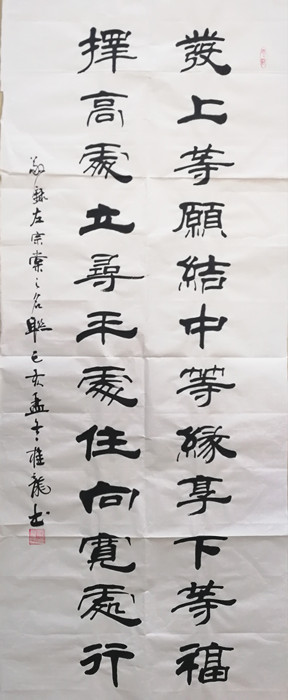 發上等願結中等緣享下等福
擇高處立尋平處住向寬處行
敬錄左宗棠之名聯己亥孟冬雄龍书